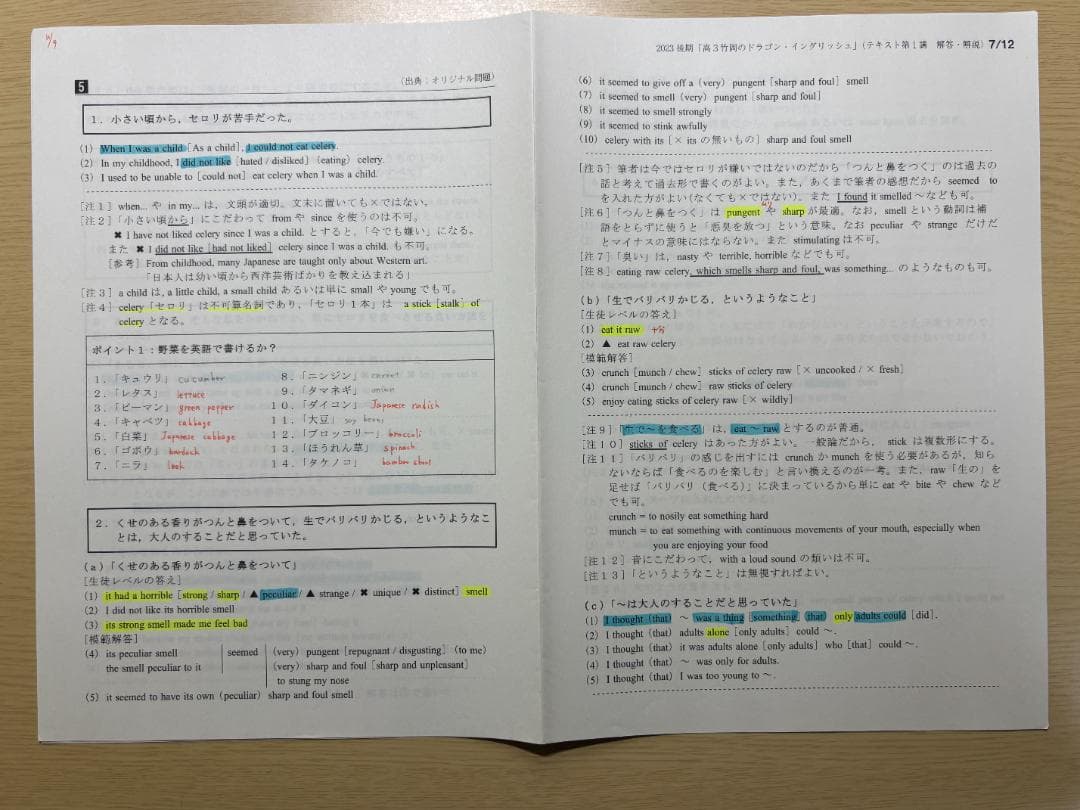 11/9
5
(出典:オリジナル問題)
1.小さい頃から,セロリが苦手だった。
(1) When I was a child [As a child], I could not eat celery.
(2) In my childhood, I did not like [hated / disliked] (eating) celery.
(3) I used to be unable to [could not] eat celery when I was a child.
[注1] when... や in my... は,文頭が適切。文末に置いても×ではない。
[注2]「小さい頃から」にこだわって from や since を使うのは不可。
✖ I have not liked celery since I was a child. とすると,「今でも嫌い」になる。
また ✖ I did not like [had not liked] celery since I was a child. も不可。
[参考] From childhood, many Japanese are taught only about Western art.
「日本人は幼い頃から西洋芸術ばかりを教え込まれる」
[注3] a child は, a little child, a small child あるいは単に small や young でも可。
[注4] celery「セロリ」は不可算名詞であり,「セロリ1本」は a stick [stalk] of
celery となる。
ポイント1:野菜を英語で書けるか?
1.「キュウリ」 cucumber
2.「レタス」 lettuce
3.「ピーマン」 green pepper
4.「キャベツ」 cabbage
5.「白菜」 Japanese cabbage
6.「ゴボウ」 burdock
7.「ニラ」 leek
8.「ニンジン」 carrot
9.「タマネギ」 onion
10.「ダイコン」 Japanese radish
11.「大豆」 soy bean
12.「ブロッコリー」 broccoli
13.「ほうれん草」 spinach
14.「タケノコ」 bamboo shoot
2.くせのある香りがつんと鼻をついて,生でバリバリかじる,というようなこ
とは,大人のすることだと思っていた。
(a)「くせのある香りがつんと鼻をついて」
[生徒レベルの答え]
(1) it had a horrible [strong / sharp / ▲ peculiar / ▲ strange / ✖ unique / ✖ distinct] smell
(2) I did not like its horrible smell
(3) its strong smell made me feel bad
[模範解答]
(4) its peculiar smell seemed (very) pungent [repugnant / disgusting] (to me)
the smell peculiar to it (very) sharp and foul [sharp and unpleasant]
to stung my nose
(5) it seemed to have its own (peculiar) sharp and foul smell
2023 後期「高3竹岡のドラゴン・イングリッシュ」(テキスト第1講 解答・解説) 7/12
(6) it seemed to give off a (very) pungent [sharp and foul] smell
(7) it seemed to smell (very) pungent [sharp and foul]
(8) it seemed to smell strongly
(9) it seemed to stink awfully
(10) celery with its [× its の無いもの] sharp and foul smell
[注5] 筆者は今ではセロリが嫌いではないのだから「つんと鼻をつく」のは過去の
話と考えて過去形で書くのがよい。また,あくまで筆者の感想だから seemed to
を入れた方がよい(なくても×ではない)。また I found it smelled ~なども可。
[注6]「つんと鼻をつく」は pungent や sharp が最適。なお, smell という動詞は補
語をとらずに使うと「悪臭を放つ」という意味。なお peculiar や strange だけだ
とマイナスの意味にはならない。また stimulating は不可。
[注7]「臭い」は, nasty や terrible, horrible などでも可。
[注8] eating raw celery, which smells sharp and foul, was something... のようなものも可。
(b)「生でバリバリかじる,というようなこと」
[生徒レベルの答え]
(1) eat it raw
(2) ▲ eat raw celery
[模範解答]
(3) crunch [munch / chew] sticks of celery raw [× uncooked / × fresh]
(4) crunch [munch / chew] raw sticks of celery
(5) enjoy eating sticks of celery raw [× wildly]
[注9]「生で~を食べる」は, eat ~ raw とするのが普通。
[注10] sticks of celery はあった方がよい。一般論だから, stick は複数形にする。
[注11]「バリバリ」の感じを出すには crunch か munch を使う必要があるが,知ら
ないならば「食べるのを楽しむ」と言い換えるのが一考。また, raw「生の」を
足せば「バリバリ(食べる)」に決まっているから単に eat や bite や chew など
でも可。
crunch = to nosily eat something hard
munch = to eat something with continuous movements of your mouth, especially when
you are enjoying your food
[注12] 音にこだわって, with a loud sound の類いは不可。
[注13]「というようなこと」は無視すればよい。
(c)「~は大人のすることだと思っていた」
(1) I thought (that) ~ was a thing [something] (that) only adults could [did].
(2) I thought (that) adults alone [only adults] could ~.
(3) I thought (that) it was adults alone [only adults] who [that] could ~.
(4) I thought (that) ~ was only for adults.
(5) I thought (that) I was too young to ~.